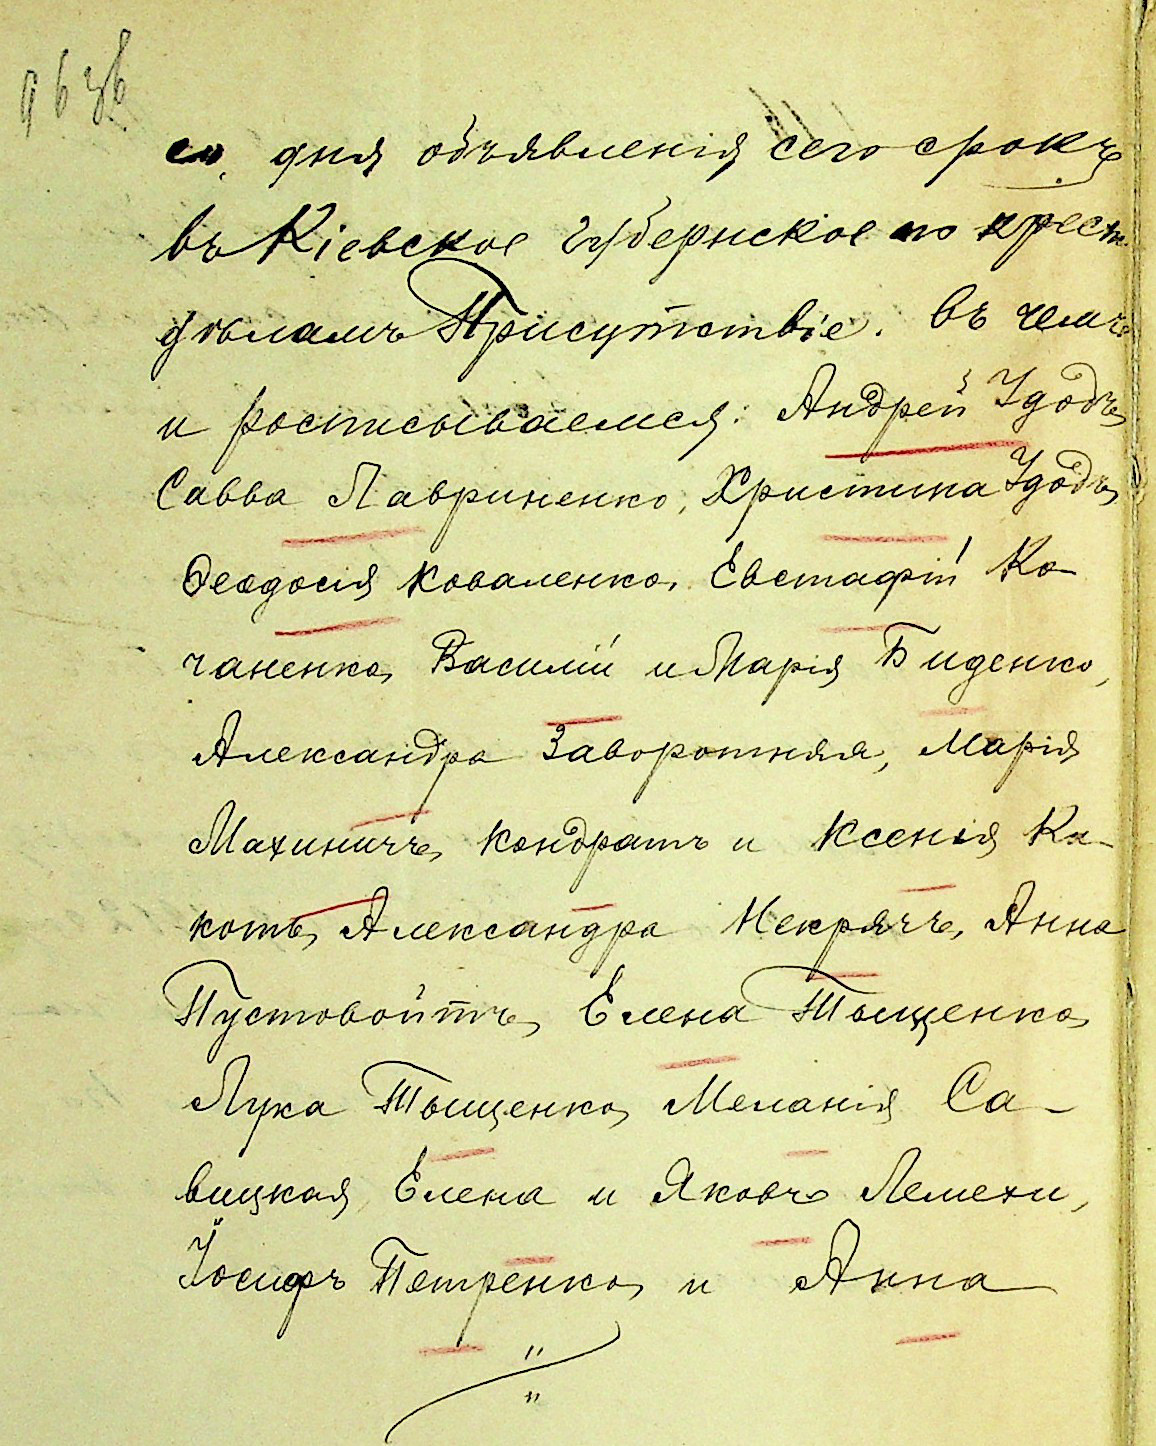 со дня объявленія сего срокъ
въ Кіевское Губернское по крест.
дѣламъ Присутствіе. Въ чемъ
и росписываемся: Андрей Удодъ,
Савва Лавриненко, Христина Удодъ,
Ѳеодосія Коваленко, Евстафій Ко-
чаненко, Василій и Марія Биденко,
Александра Заворотняя, Марія
Махиничъ, Кондратъ и Ксенія Ко-
котъ, Александра Некрячъ, Анна
Пустовойтъ, Елена Тыщенко,
Лука Тыщенко, Меланія Са-
вицкая, Елена и Яковъ Лемехи,
Іосифъ Петренко, и Анна